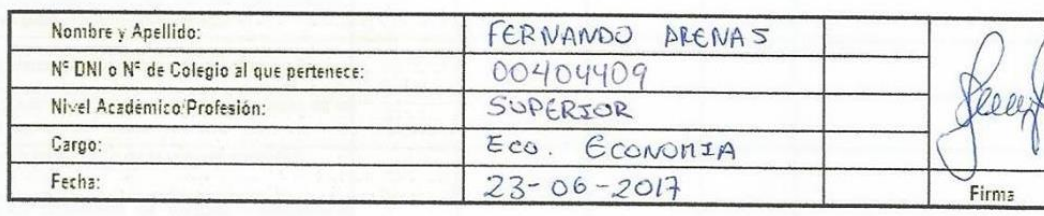 Nombre y Apellido: FERNANDO ARENAS
Nº DNI o Nº de Colegio al que pertenece: 00404409
Nivel Académico/Profesión: SUPERIOR
Cargo: Eco. ECONOMIA
Fecha: 23-06-2017
Firma